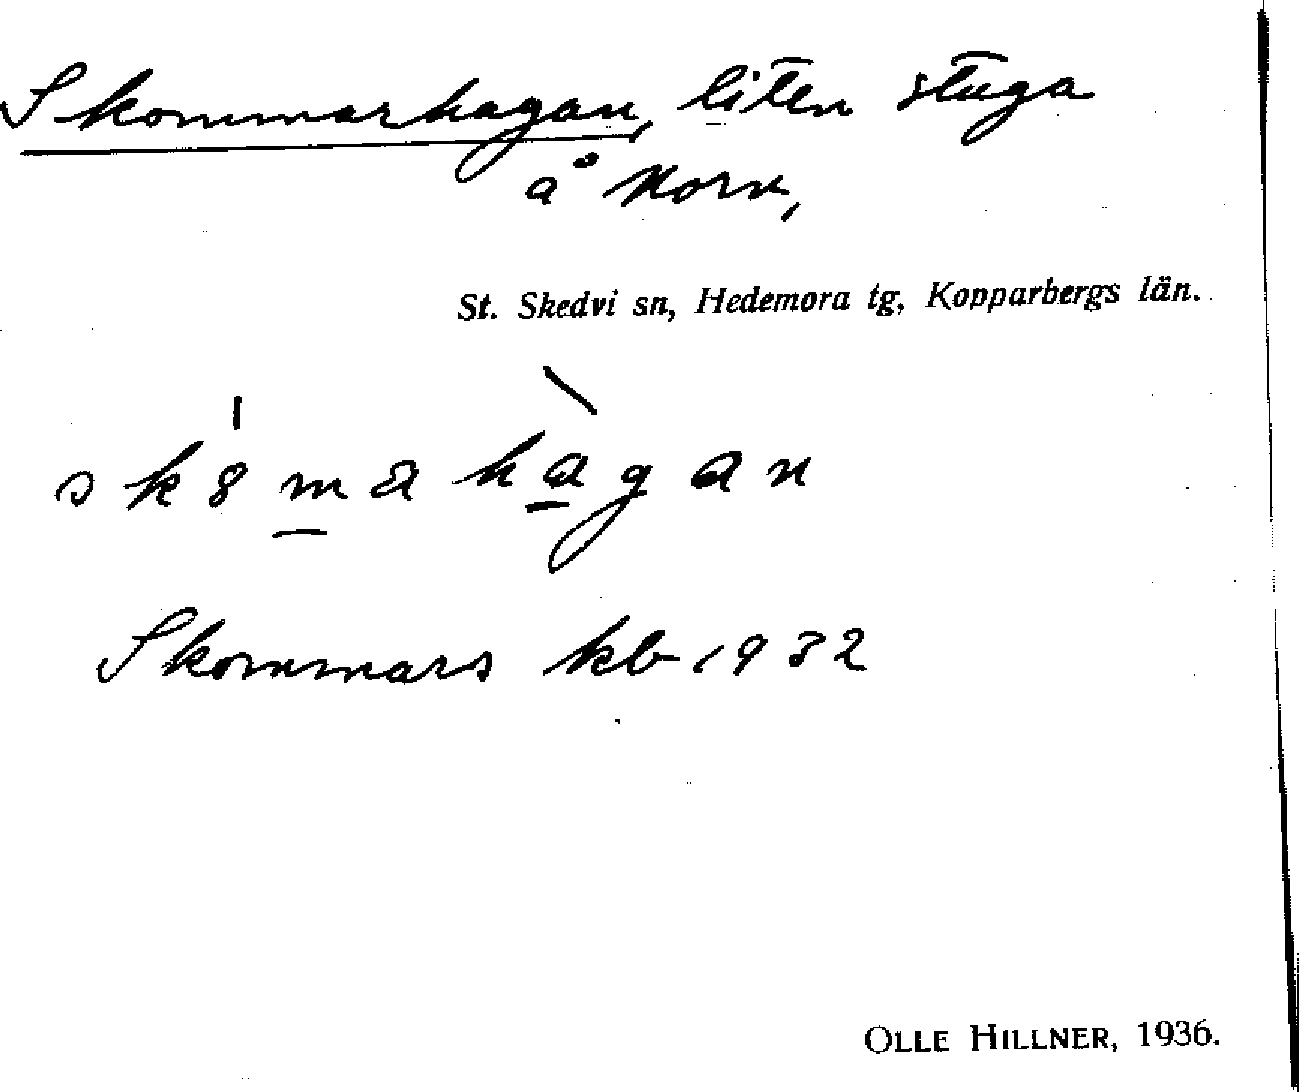 Skommarhagan, liten stuga
å Norn,
St. Skedvi sn, Hedemora tg, Kopparbergs län.
Skommars kb 1932
OLLE HILLNER, 1936.